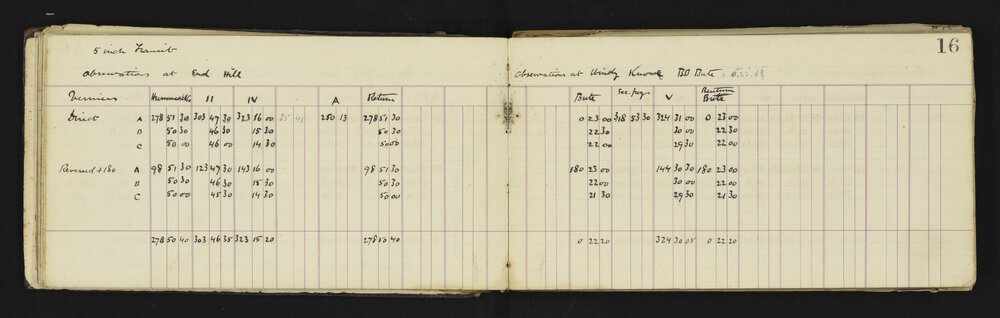 16
5 inch Transit
Observations at End Hill
Verniers Hummocks II IV A Return
Direct A 278 51 30 303 47 30 323 16 00 35 43 250 13 278 51 30
B 50 30 46 30 15 30 50 30
C 50 00 46 00 14 30 50 00
Reversed + 180 A 98 51 30 123 47 30 143 16 00 98 51 30
B 50 30 46 30 15 30 50 30
C 50 00 45 30 14 30 50 00
278 50 40 303 46 35 323 15 20 278 50 40
Observations at Windy Knowe BO Bute = 0.22.03
Bute Sec. peg V Return Bute
0 23 00 318 53 30 324 31 00 0 23 00
22 30 30 00 22 30
22 00 29 30 22 00
180 23 00 144 30 30 180 23 00
22 00 30 00 22 00
21 30 29 30 21 30
0 22 20 324 30 05 0 22 20